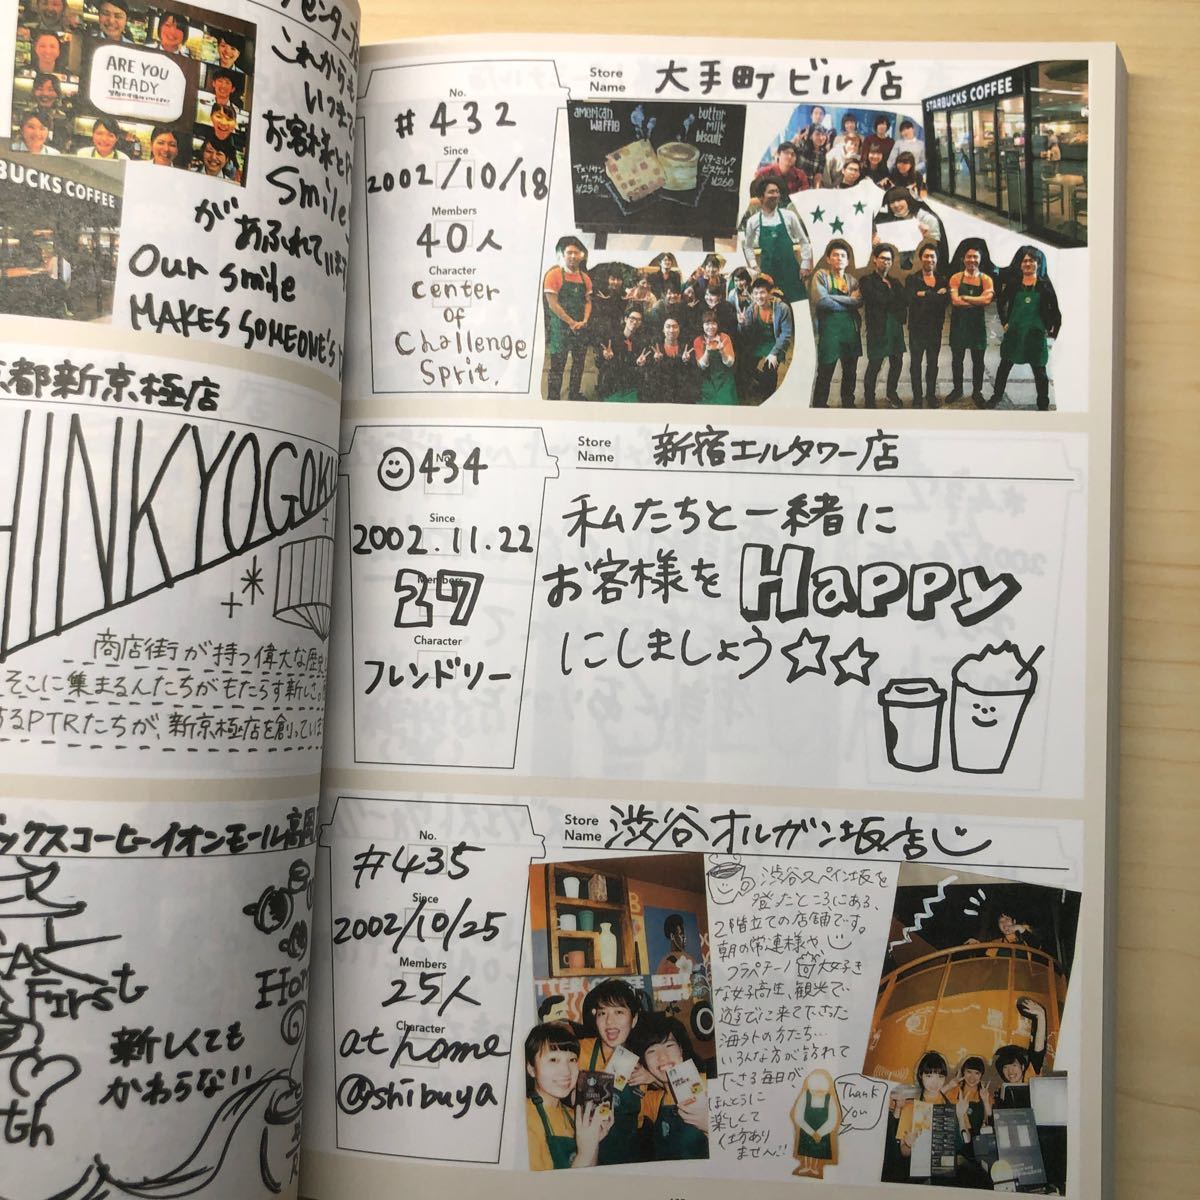 これからも
いつまで
お客様と
Smile
があふれています
Our smile
MAKES SOMEONE'S
ARE YOU
READY
BUCKS COFFEE
都新京極店
HINKYOGOKU
商店街が持つ偉大な歴史
そこに集まる人たちがもたらす新しさ。
するPTRたちが、新京極店を創っています
ックスコーヒーイオンモール高岡
First
新しくても
かわらない
No.
#432
Since
2002/10/18
Members
40人
Character
Center
of
Challenge
Sprit.
Store
Name
大手町ビル店
american
waffle
butter
milk
biscuit
アメリカンワッフル
¥250
バターミルク
ビスケット
¥260
STARBUCKS COFFEE
No.
434
Since
2002.11.22
Members
27
Character
フレンドリー
Store
Name
新宿エルタワー店
私たちと一緒に
お客様をHappy
にしましょう☆☆
No.
#435
Since
2002/10/25
Members
25人
Character
at home
@shibuya
Store
Name
渋谷オルガン坂店
渋谷スペイン坂を
登ったところにある、
2階立ての店舗です。
朝の常連様や、
フラペチーノ大好き
な女子高生、観光で、
遊びに来て下さった
海外の方たち…
いろんな方が訪れて
下さる毎日が、
ほんとうに
楽しくて
仕方あり
ません!!
Thank
you